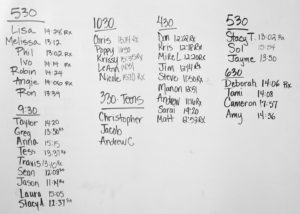 530
Lisa 14:26 Rx
Melissa 13:12
Phil 13:02 Rx
Ivo 14:14 Rx
Robin 14:24
Angie 14:06 Rx
Ron 13:39
9:30
Taylor 14:20
Greg 13:50
Anna 15:15
Tess 13:37
Travis 13:40 Rx
Sean 12:08
Jason 11:
Laura 15:05
Stacy A. 12:37
1030
Chris 13:14 Rx
Poppy
Krissy 13:35 Rx
LeAnn 14:31
Nicole 15:10 Rx
330-Teens
Christopher
Jacob
Andrew C
430
Don 12:02 Rx
Kris 12:18 Rx
Mike L 12:20 Rx
Jim 12:41 Rx
Steve
Manon 13:51
Andrew
Sarai 14:20
Matt 12:52 Rx
530
Stacy T. 13:02 Rx
Sol 13:04
Jayme 13:50
630
Deborah 14:06 Rx
Tami 14:08
Cameron 17:57
Amy 14:36